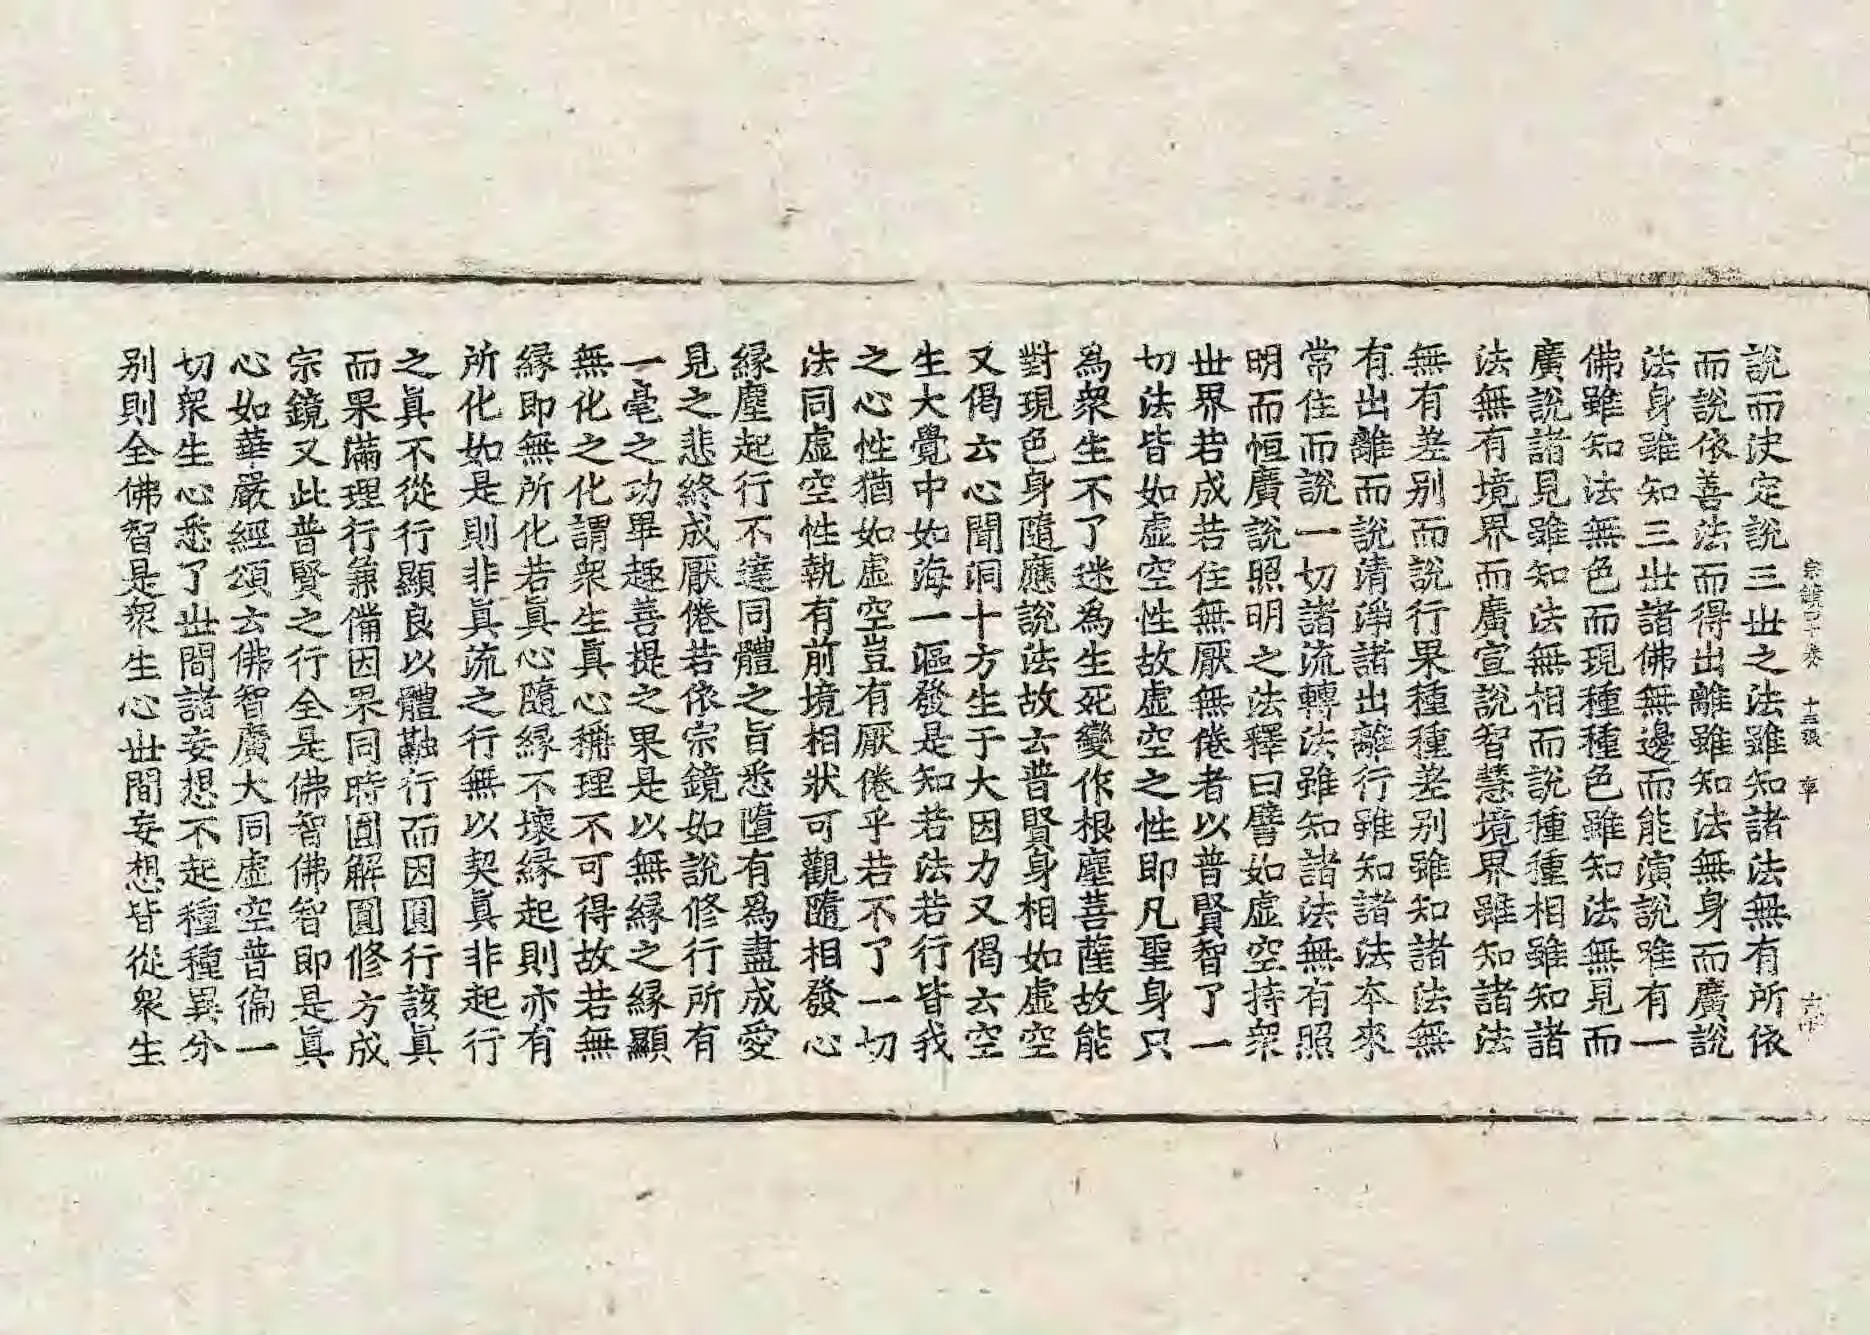 宗鏡四十卷 十三張 寧
說而決定說三世之法雖知諸法無有所依
而說依善法而得出離雖知法無身而廣說
法身雖知三世諸佛無邊而能演說唯有一
佛雖知法無色而現種種色雖知法無見而
廣說諸見雖知法無相而說種種相雖知諸
法無有境界而廣宣說智慧境界雖知諸法
無有差别而說行果種種差别雖知諸法無
有出離而說清淨諸出離行雖知諸法本來
常住而說一切諸流轉法雖知諸法無有照
明而恒廣說照明之法釋曰譬如虛空持衆
世界若成若住無厭無倦者以普賢智了一
切法皆如虛空性故虛空之性即凡聖身只
爲衆生不了迷爲生死變作根塵菩薩故能
對現色身隨應說法故云普賢身相如虛空
又偈云心聞洞十方生于大因力又偈云空
生大覺中如海一漚發是知若法若行皆我
之心性猶如虛空豈有厭倦乎若不了一切
法同虛空性執有前境相狀可觀隨相發心
緣塵起行不達同體之旨悉墮有爲盡成愛
見之悲終成厭倦若依宗鏡如說修行所有
一毫之功畢趣菩提之果是以無緣之緣顯
無化之化謂衆生真心稱理不可得故若無
緣即無所化若真心隨緣不壞緣起則亦有
所化如是則非真流之行無以契真非起行
之真不從行顯良以體融行而因圓行該真
而果滿理行兼備因果同時圓解圓修方成
宗鏡又此普賢之行全是佛智佛智即是真
心如華嚴經頌云佛智廣大同虛空普徧一
切衆生心悉了世間諸妄想不起種種異分
别則全佛智是衆生心世間妄想皆從衆生